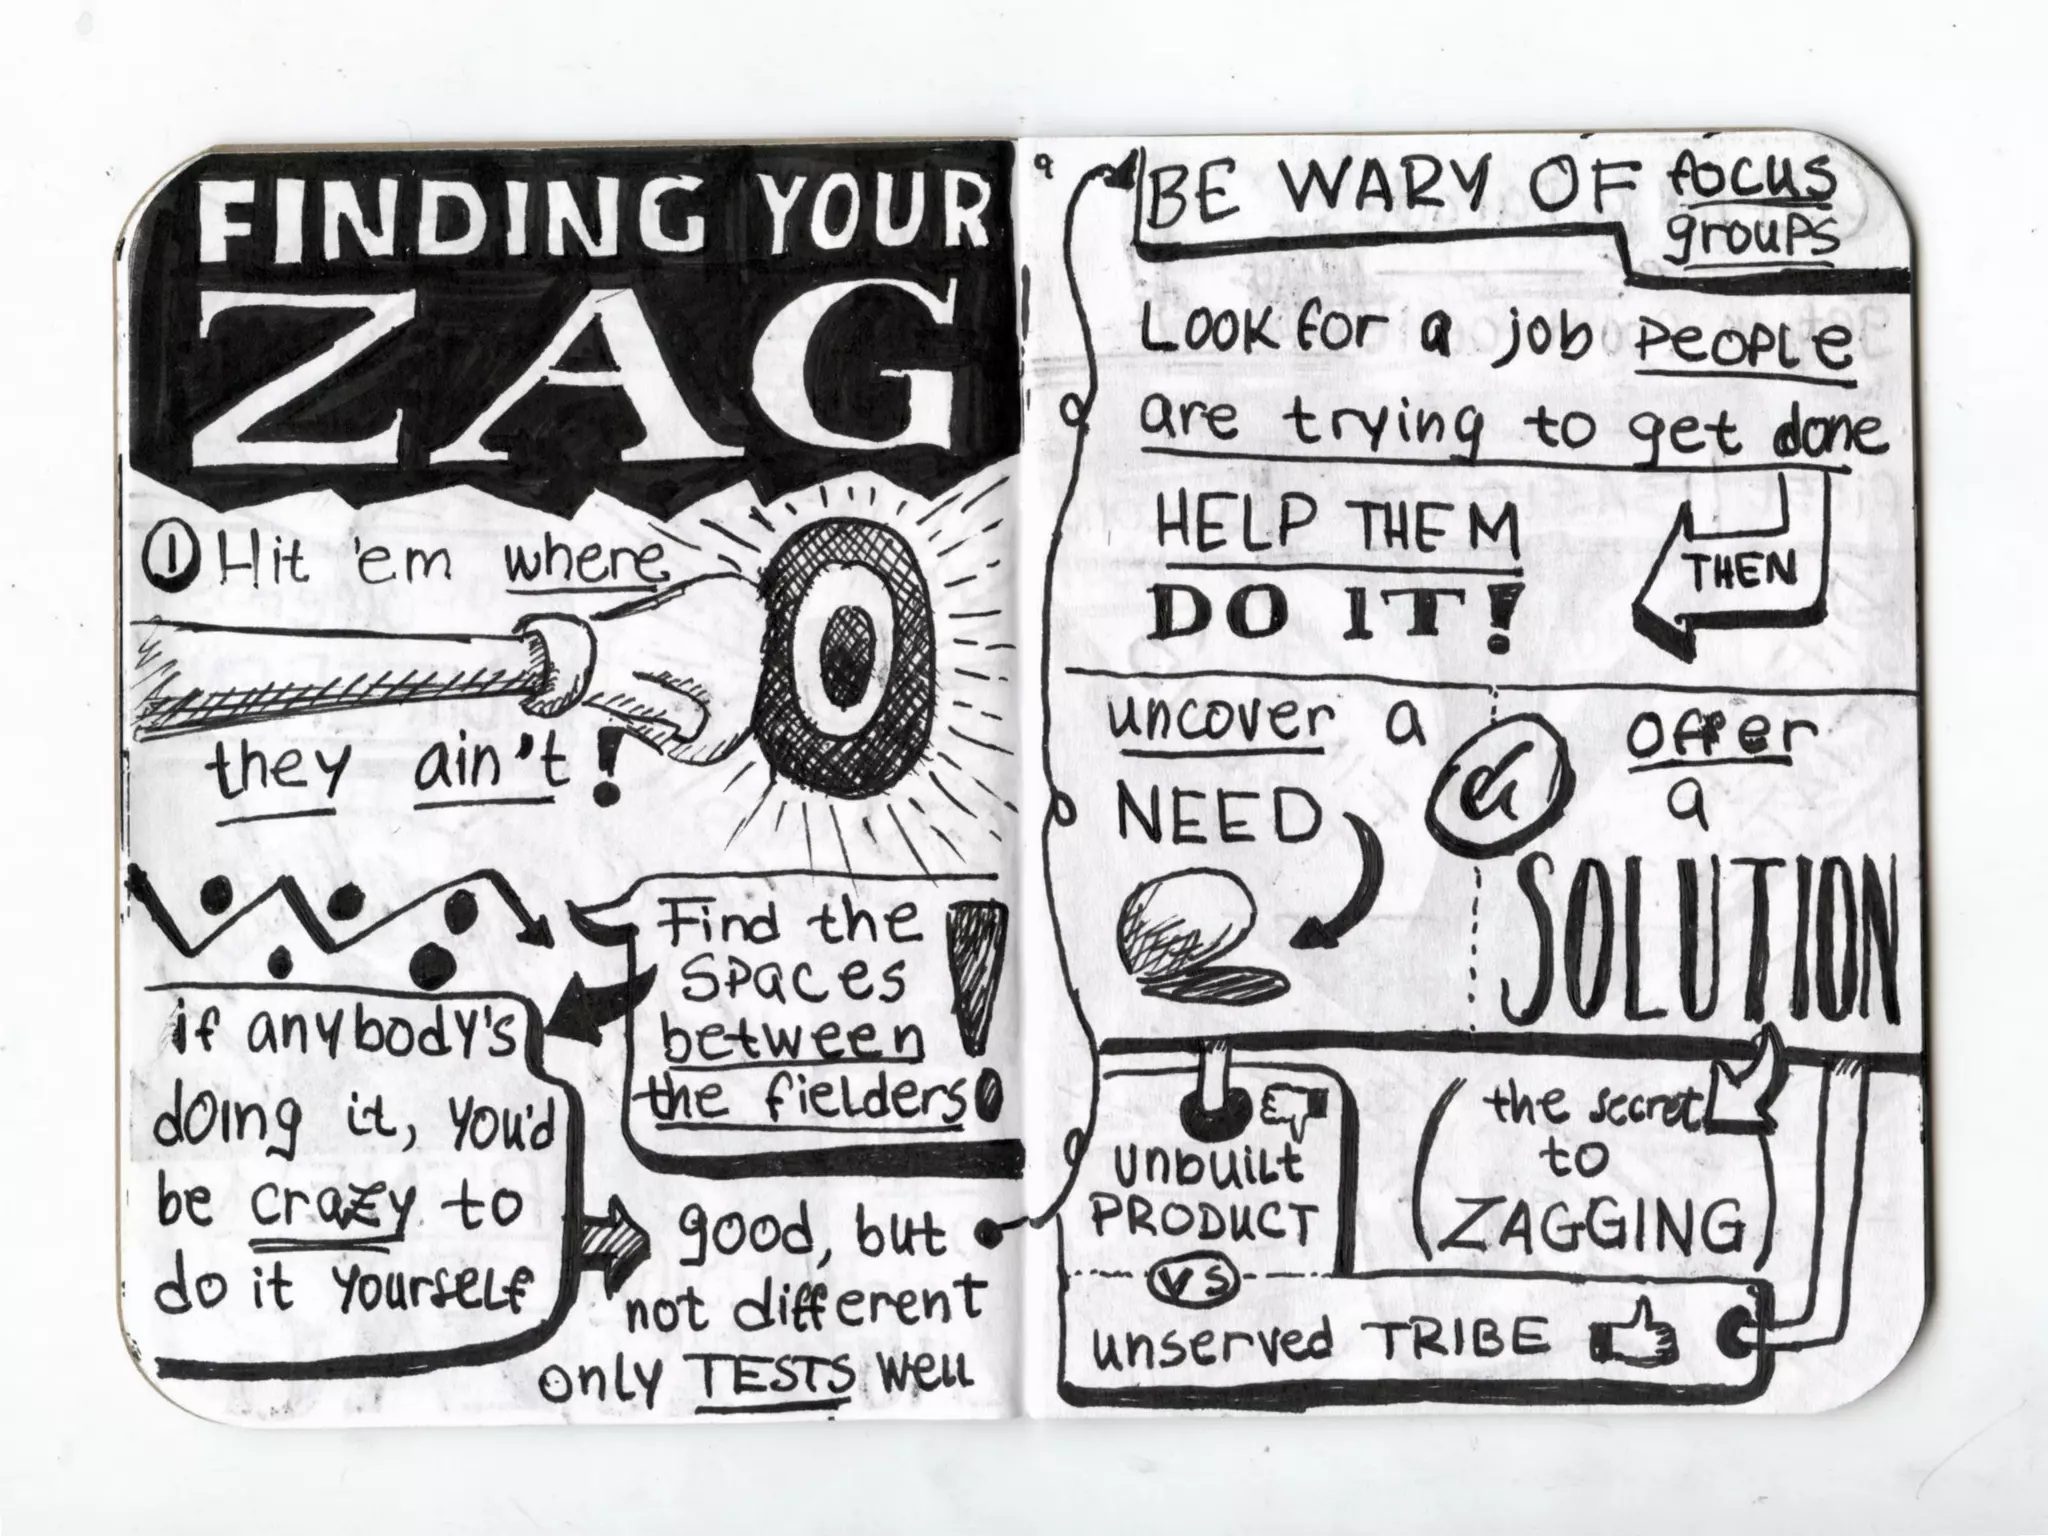 FINDING YOUR
ZAG
1 Hit 'em where
they ain't!
Find the
spaces
between
the fielders!
if anybody's
doing it, you'd
be crazy to
do it yourself
good, but
not different
only TESTS well
BE WARY OF focus
groups
Look for a job people
are trying to get done
THEN
HELP THEM
DO IT!
uncover a
NEED
&
offer
a
SOLUTION
(the secret
to
ZAGGING)
unbuilt
PRODUCT
VS
unserved TRIBE